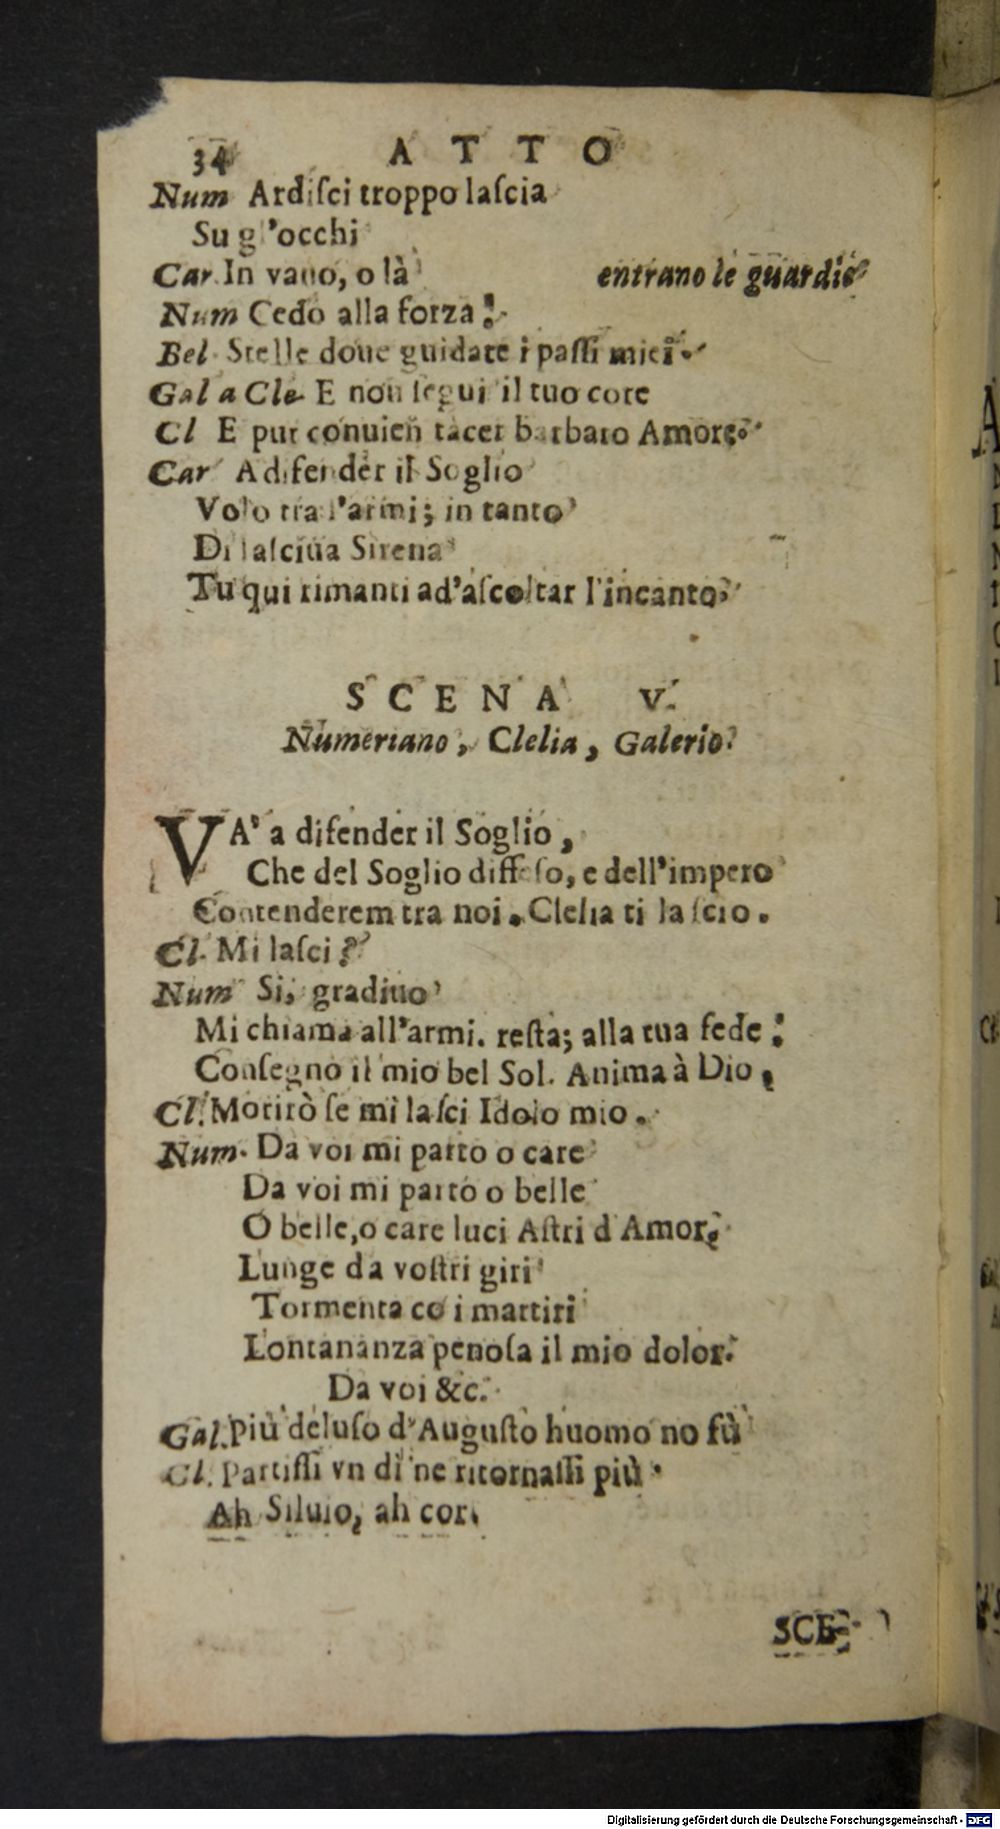 34 ATTO
Num Ardiſci troppo laſcia
Su gl'occhi
Car. In vano, o là entrano le guardie
Num Cedo alla forza!
Bel Stelle doue guidate i paſſi miei.
Gal a Cle. E non ſegui il tuo core
Cl E pur conuien tacer barbaro Amore.
Car A difender il Soglio
Volo tra l'armi; in tanto
Di laſciua Sirena
Tu qui rimanti ad'aſcoltar l'incanto?
SCENA V.
Numeriano, Clelia, Galerio.
VA' a difender il Soglio,
Che del Soglio diffeſo, e dell'impero
Contenderem tra noi. Clelia ti laſcio.
Cl. Mi laſci?
Num Si, gradiuo
Mi chiama all'armi. reſta; alla tua fede:
Conſegno il mio bel Sol. Anima à Dio,
Cl. Morirò ſe mi laſci Idolo mio.
Num. Da voi mi parto o care
Da voi mi parto o belle
O belle, o care luci Aſtri d'Amor,
Lunge da voſtri giri
Tormenta co i martiri
Lontananza penoſa il mio dolor.
Da voi &c.
Gal. Più deluſo d'Auguſto huomo no fù
Cl. Partiſſi vn di ne ritornaſſi più.
Ah Siluio, ah cor.
SCE-
Digitalisierung gefördert durch die Deutsche Forschungsgemeinschaft - DFG